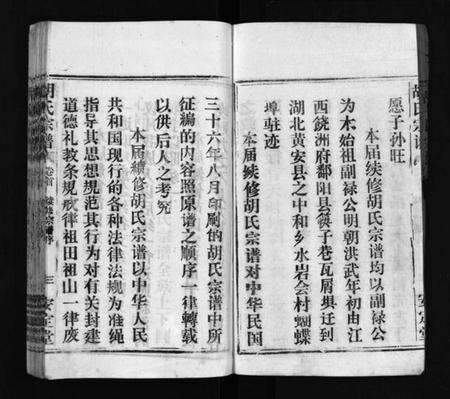 愿子孙旺
本届续修胡氏宗谱均以副禄公
为木始祖副禄公明朝洪武年初由江
西饶洲府鄱阳县筷子巷瓦屑坝迁到
湖北黄安县之中和乡水岩会村蝴蝶
埠驻迹
本届续修胡氏宗谱对中华民国
三十六年八月印刷的胡氏宗谱中所
征编的内容照原谱之顺序一律转载
以供后人之考究
本届续修胡氏宗谱以中华人民
共和国现行的各种法律法规为准绳
指导其思想规范其行为对有关封建
道德礼教条规戒律祖田祖山一律废
胡氏宗谱
卷首
三
安定堂
胡氏宗谱
安定堂